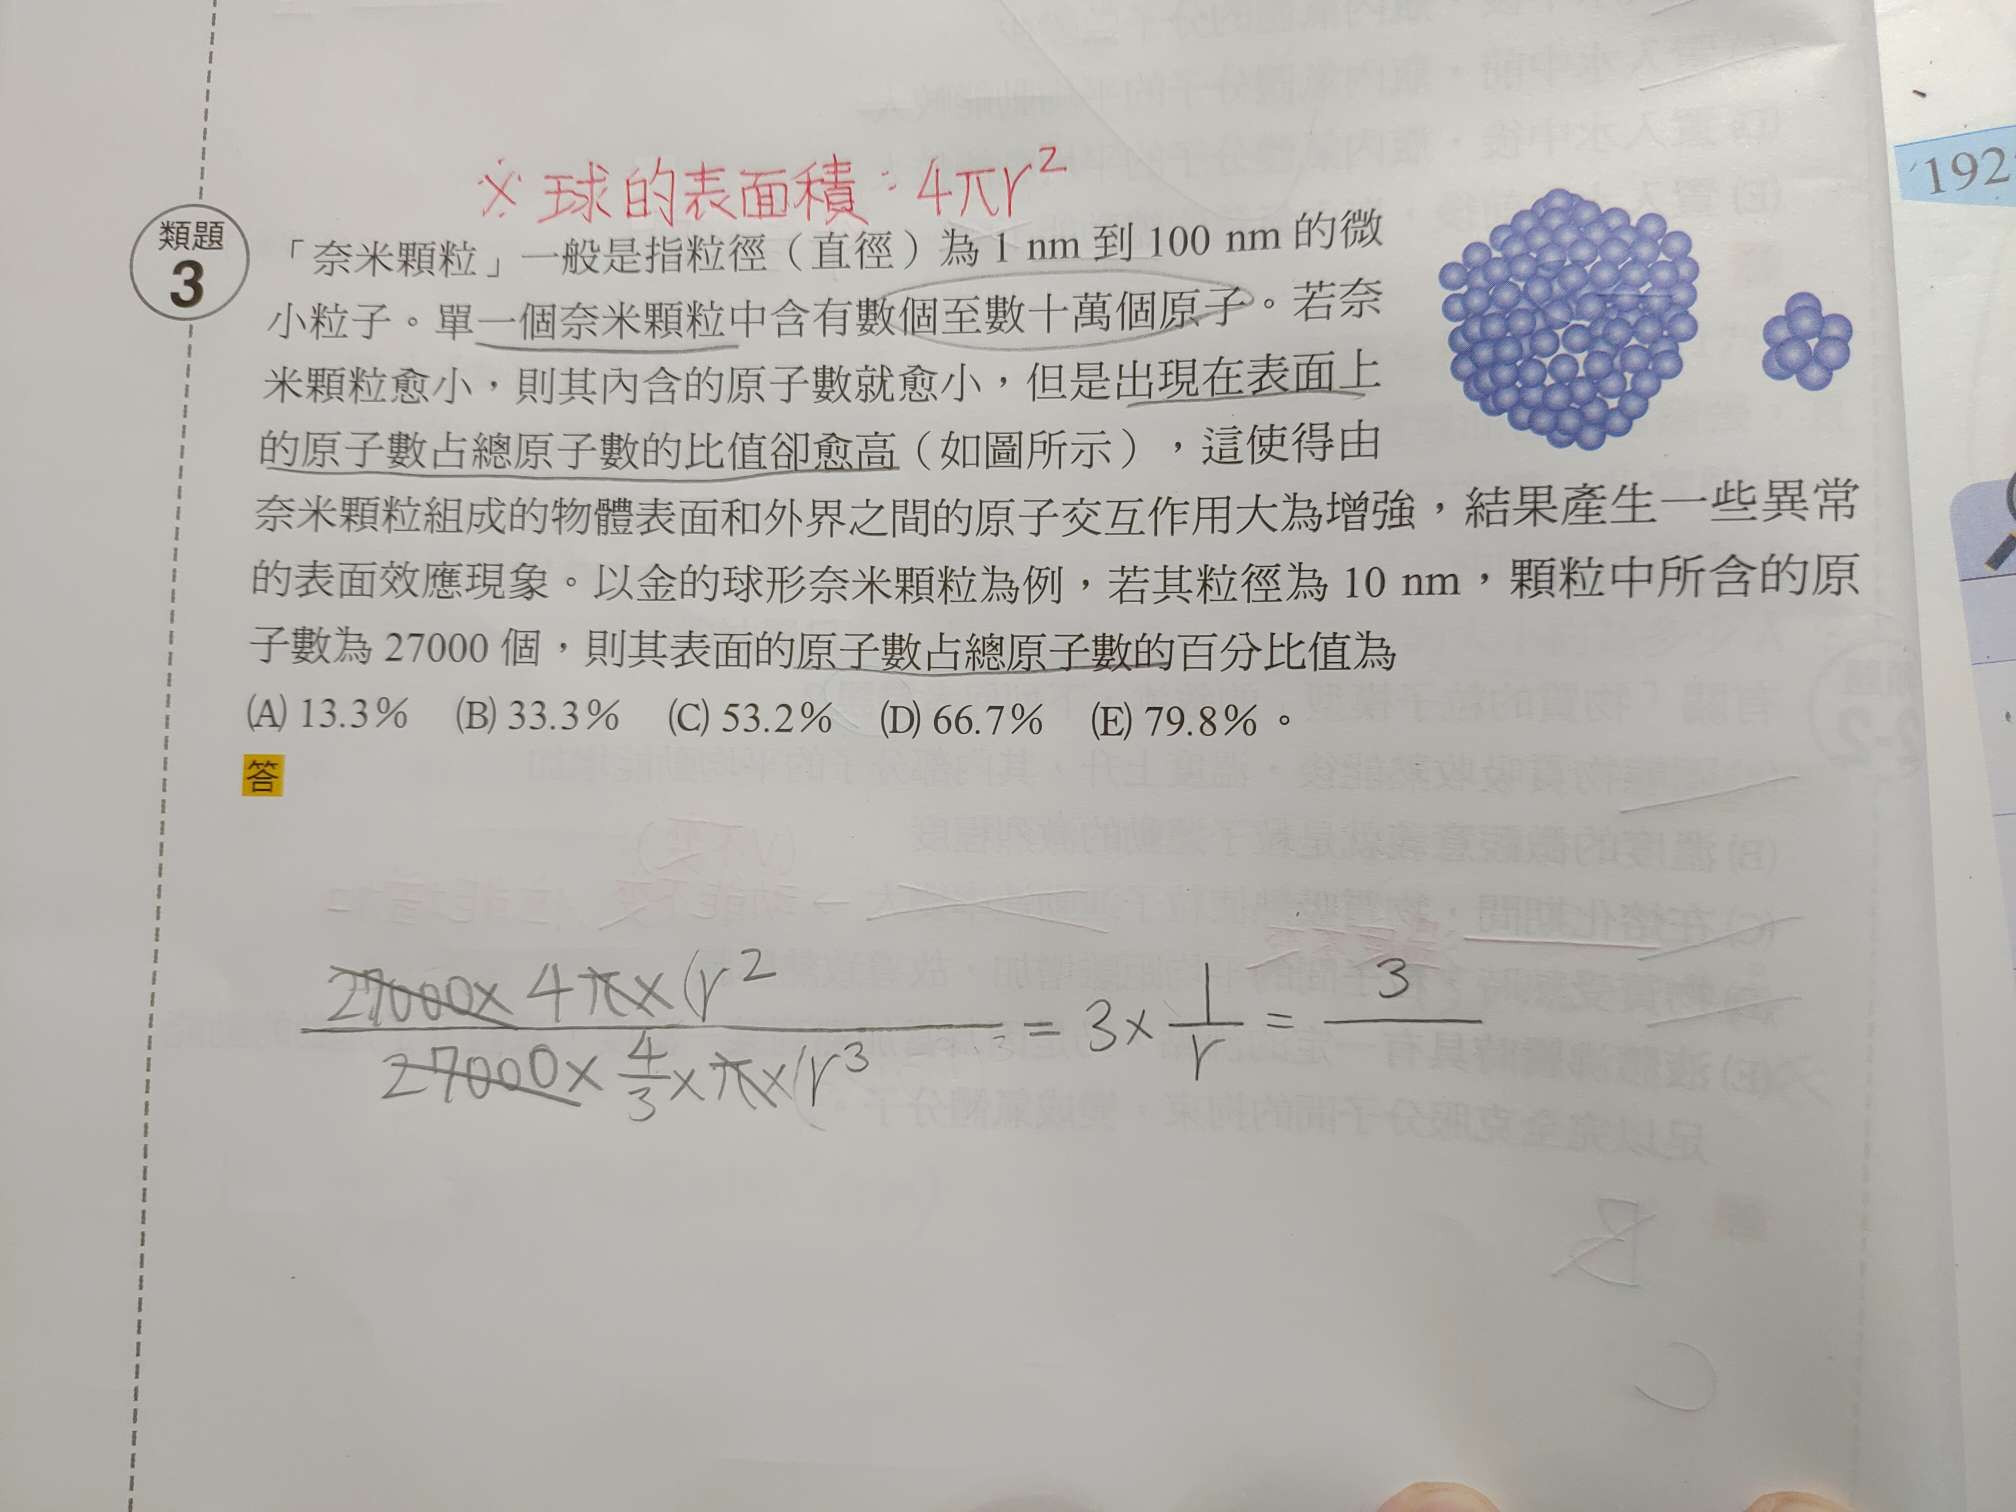 ※ 球的表面積：4πr²
1923
類題
3
「奈米顆粒」一般是指粒徑（直徑）為 1 nm 到 100 nm 的微
小粒子。單一個奈米顆粒中含有數個至數十萬個原子。若奈
米顆粒愈小，則其內含的原子數就愈小，但是出現在表面上
的原子數占總原子數的比值卻愈高（如圖所示），這使得由
奈米顆粒組成的物體表面和外界之間的原子交互作用大為增強，結果產生一些異常
的表面效應現象。以金的球形奈米顆粒為例，若其粒徑為 10 nm，顆粒中所含的原
子數為 27000 個，則其表面的原子數占總原子數的百分比值為
(A) 13.3% (B) 33.3% (C) 53.2% (D) 66.7% (E) 79.8%。
答
27000× 4π×(r²
27000× 4/3 ×π×(r³
= 3× 1/r = 3